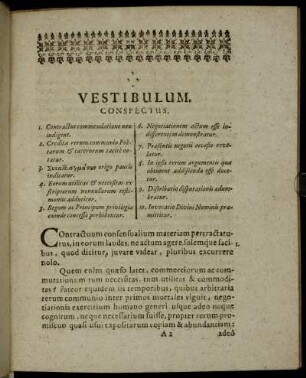 VESTIBULUM.
CONSPECTUS.
1. Contractus commendatione non
indigent.
2. Credita rerum communio Poë-
tarum & caeterorum taciti no-
tatur.
3. origo paucis
indicatur.
4. Earum utilitas & necessitas ex
scriptorum monumentis osten-
ditur.
5. Regum ac Principum privilegia
eundem confessa perhibentur.
6. Negotiationem actum esse in-
differentem demonstratur.
7. Praesentis negotii occasio reve-
latur.
8. In ipsa rerum argumentis quae
obtinent addiscenda esse docen-
tur.
9. Distributio disputationis adum-
bratur.
10. Invocatio Divini Numinis prae-
mittitur.
Contractuum consensualium materiam pertractatu-
rus, in eorum laudes, ne actum agere, salemque faci- 1.
c, quod dicitur, juvare videar, pluribus excurrere
nolo.
Quem enim quaeso latet, commerciorum ac com-
mutationum rum necessitas, tum utilitas & commodi-
tas? Fateor equidem in temporibus, quibus arbitraria
rerum communio inter primos mortales viguit, nego-
tiationis exercitium humano generi usque adeo neque
cognitum, neque necessarium fuisse, propter rerum pro-
miscuo quasi usui expositarum copiam & abundantiam:
A 2 adeò